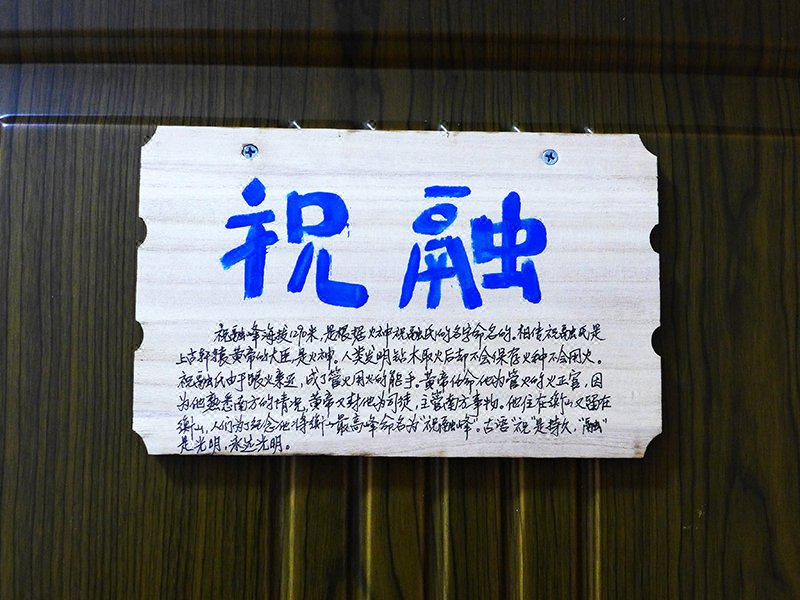 祝融
祝融峰海拔1290米,是根据火神祝融氏的名字命名的。相传祝融氏是
上古轩辕黄帝的大臣,是火神。人类发明钻木取火后却不会保存火种不会用火。
祝融氏由于跟火亲近,成了管火用火的能手。黄帝任命他为管火的火正官。因
为他熟悉南方的情况,黄帝又封他为司徒,主管南方事物。他住在衡山又留在
衡山,人们为了纪念他将衡山最高峰命名为"祝融峰"。古语"祝"是持久,"融"
是光明,永远光明。